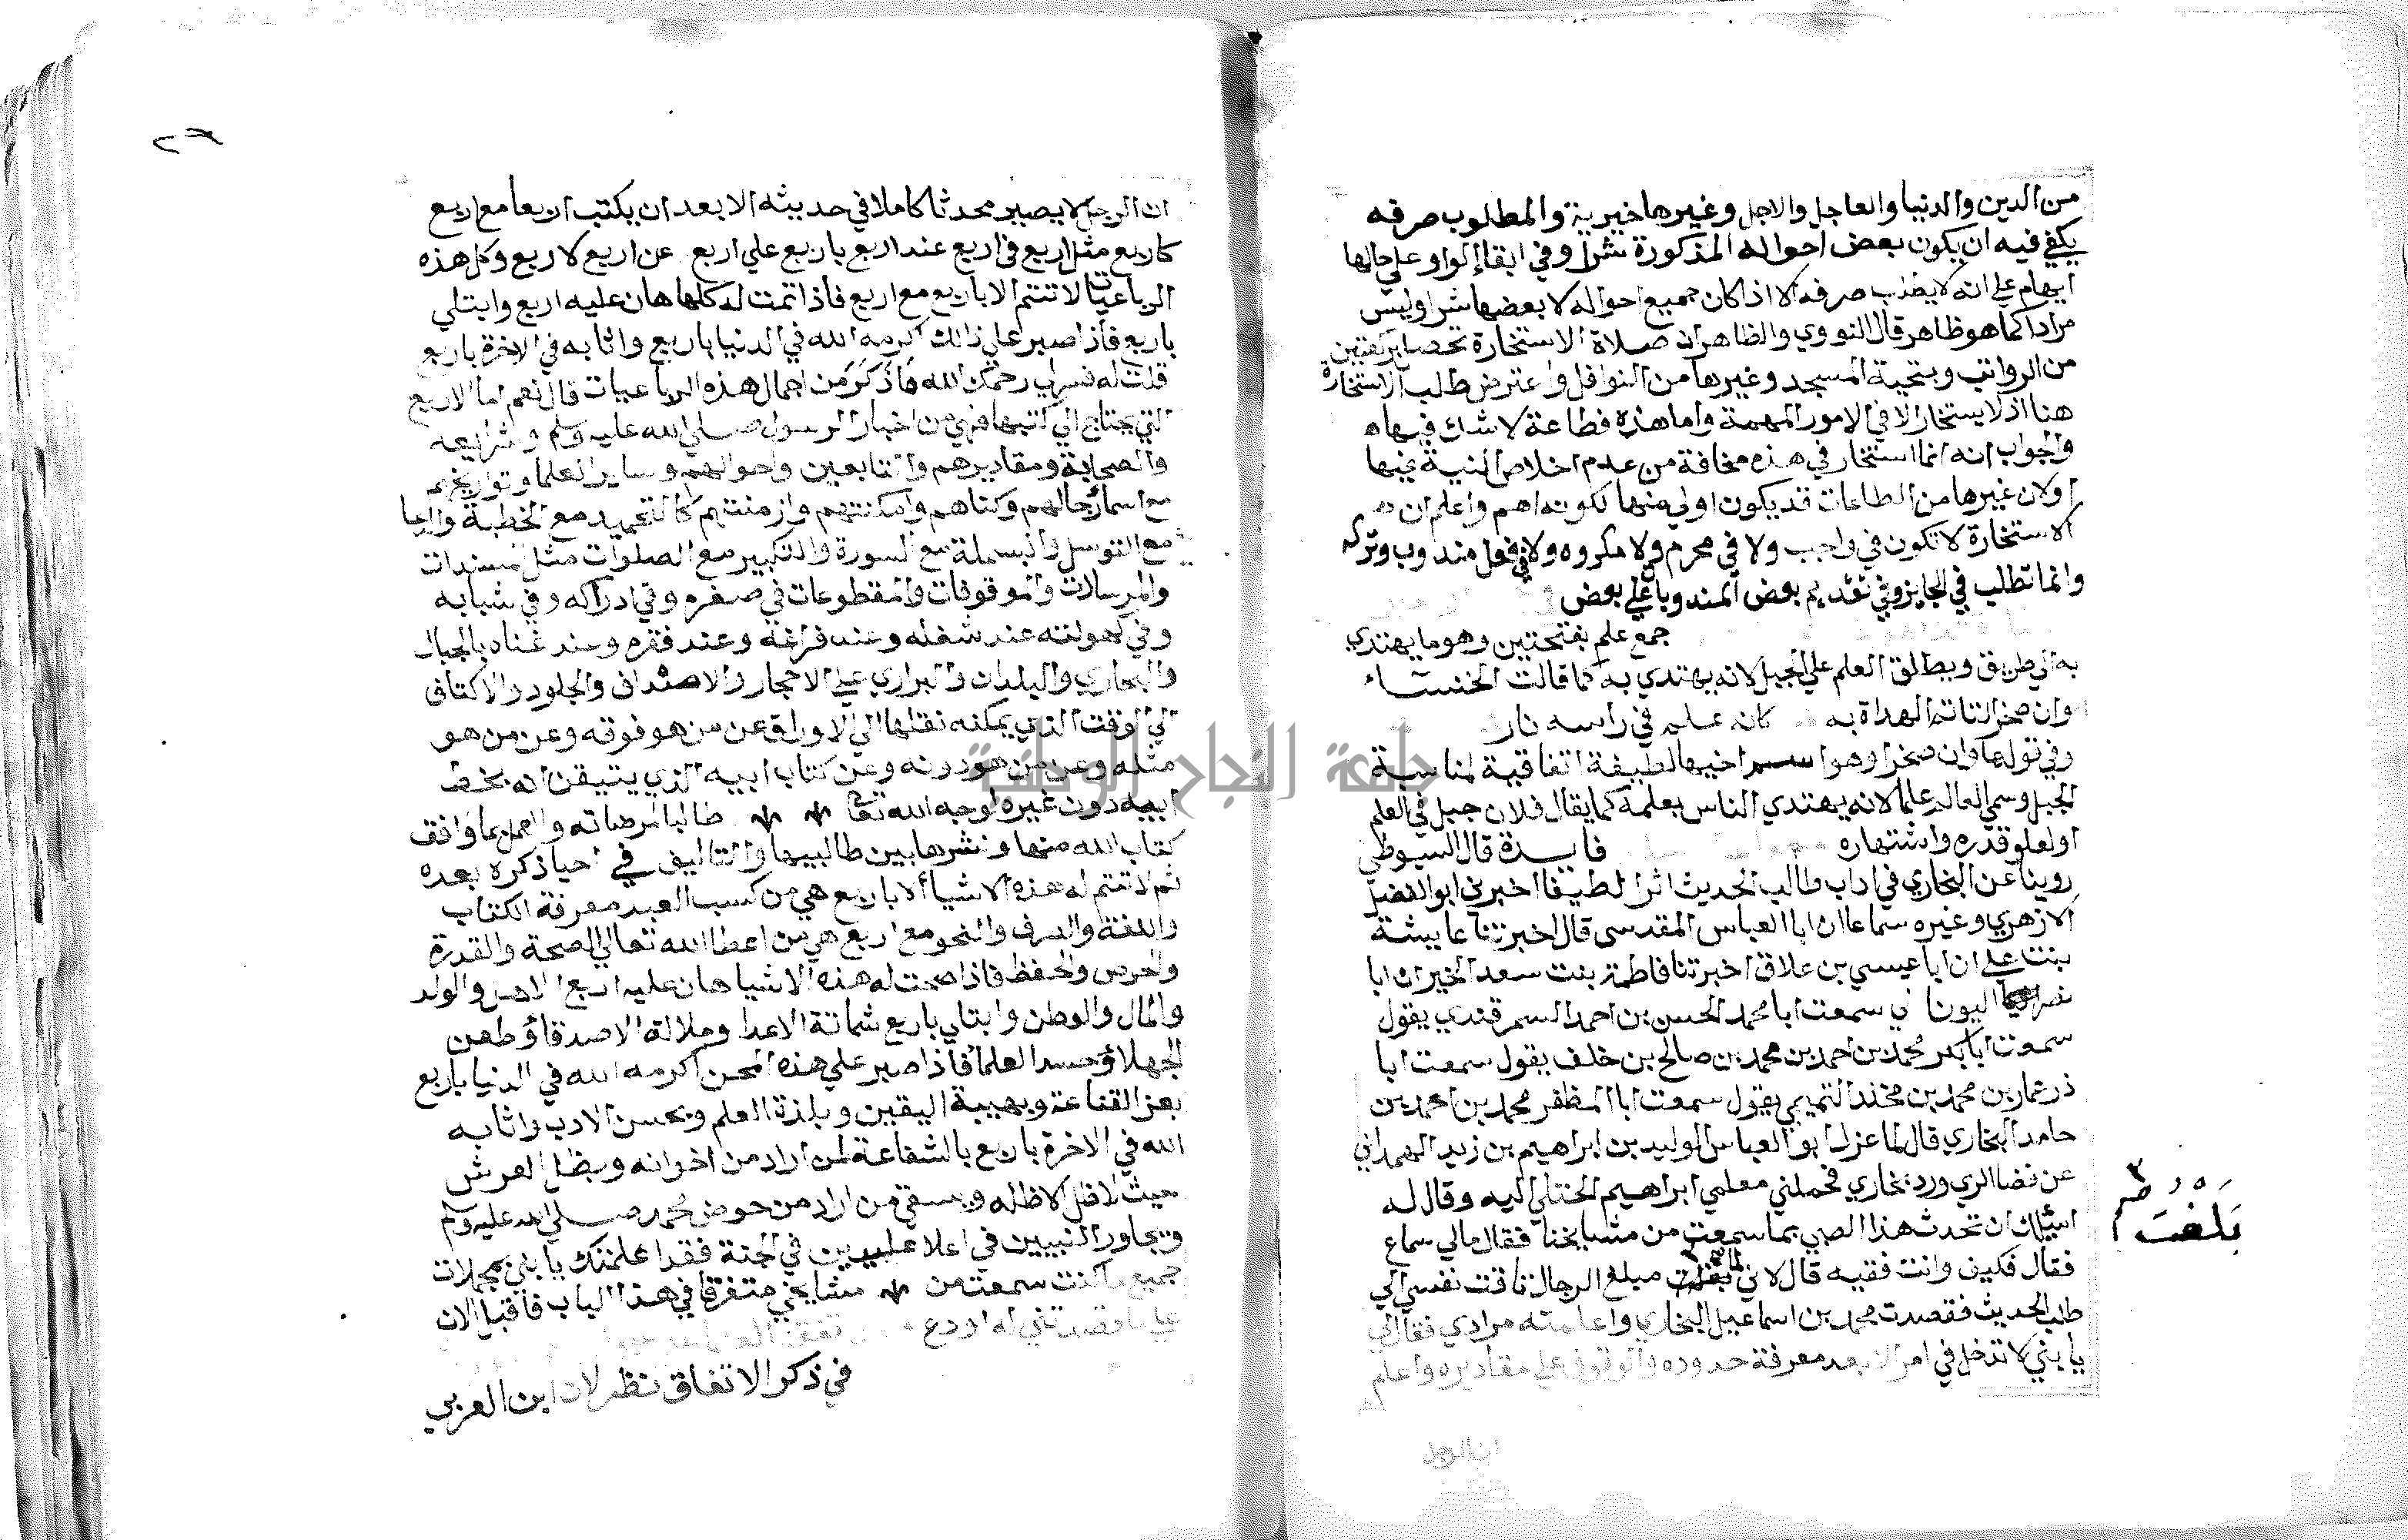 من الدين والدنيا والعاجل والاجل وغيرها خيرية والمطلوب صرفه
يكفي فيه ان يكون بعض احواله المذكورة شرا وفي ابقاء الواو على حالها
ايهام على انه لا يطلب صرفه الا اذا كان جميع احواله لا بعضها شرا وليس
مرادا كما هو ظاهر قال النووي والظاهر ان صلاة الاستخارة تحصل بركعتين
من الرواتب وبتحية المسجد وغيرها من النوافل واعترض طلب الاستخارة
هنا اذ لا يستخار الا في الامور المهمة واما هذه فطاعة لا شك فيها
والجواب انه انما استخار في هذه مخافة من عدم اخلاص النية فيها
اولان غيرها من الطاعات قد يكون اولى منها لكونه اهم واعلم ان
الاستخارة لا تكون في واجب ولا في محرم ولا مكروه ولا في فعل مندوب وتركه
وانما تطلب في الجايز وفي تقديم بعض المندوبات على بعض
جمع علم بفتحتين وهو ما يهتدي
به الى طريق ويطلق العلم على الجبل لانه يهتدي به كما قالت الخنساء
وان صخرا لتاتم الهداة به كانه علم في راسه نار
وفي قولها وان صخرا وهو اسم اخيها لطيفة اتفاقية لمناسبة
الجبل وسمي العالم علما لانه يهتدي الناس بعلمه كما يقال فلان جبل في العلم
او لعلو قدره واشتهاره فايدة قال السيوطي
روينا عن البخاري في اداب طالب الحديث اثرا لطيفا اخبرني ابو الفضل
الازهري وغيره سماعا ان ابا العباس المقدسي قال اخبرتنا عايشة
بنت علي ان ابا عيسى بن علاق اخبرتنا فاطمة بنت سعد الخير ان ابا
نصر اليوناني سمعت ابا محمد الحسن بن احمد السمرقندي يقول
سمعت ابا بكر محمد بن احمد بن محمد بن صالح بن خلف يقول سمعت ابا
ذر عمار بن محمد بن مخلد التميمي يقول سمعت ابا المظفر محمد بن احمد بن
حامد البخاري قال لما عزل ابو العباس الوليد بن ابراهيم بن زيد الهمداني
عن قضا الري ورد بخاري فحملني معلمي ابراهيم الختلي اليه وقال له
اسئلك ان تحدث هذا الصبي بما سمعت من مشايخنا فقال مالي سماع
فقال فكيف وانت فقيه قال لاني لما بلغت مبلغ الرجال تاقت نفسي الى
طلب الحديث فقصدت محمد بن اسماعيل البخاري واعلمته مرادي فقال لي
يا بني لا تدخل في امر الا بعد معرفة حدوده والوقوف على مقاديره واعلم
ان الرجل
بلغت
ان الرجل لا يصير محدثا كاملا في حديثه الا بعد ان يكتب اربعا مع اربع
كاربع مثل اربع في اربع عند اربع باربع على اربع عن اربع لاربع وكل هذه
الرباعيات لا تتم الا باربع مع اربع فاذا تمت له كلها هان عليه اربع وابتلي
باربع فاذا صبر على ذلك اكرمه الله في الدنيا باربع واثابه في الاخرة باربع
قلت له فسر لي رحمك الله ما ذكرت من اجمال هذه الرباعيات قال نعم اما الاربع
التي يحتاج الى كتبها فهي من اخبار الرسول صلى الله عليه وسلم وشرايعه
والصحابة ومقاديرهم والتابعين واحوالهم وساير العلما وتواريخهم
مع اسما رجالهم وكناهم وامكنتهم وازمنتهم كالتحميد مع الخطبة والدعا
مع التوسل والبسملة مع السورة والتكبير مع الصلوات مثل المسندات
والمرسلات والموقوفات والمقطوعات في صغره وفي ادراكه وفي شبابه
وفي كهولته عند شغله وعند فراغه وعند فقره وعند غناه بالجبال
والبحار والبلدان والبراري على الاحجار والاصداف والجلود والاكتاف
الى الوقت الذي يمكنه نقلها الى الاوراق عن من هو فوقه وعن من هو
مثله وعن من هو دونه وعن كتاب ابيه الذي يتيقن انه بخط
ابيه دون غيره لوجه الله تعا طالبا لمرضاته والعمل بما وافق
كتاب الله منها ونشرها بين طالبيها والتاليف في احيا ذكره بعده
ثم لا تتم له هذه الاشيا الا باربع هي من كسب العبد معرفة الكتاب
واللغة والصرف والنحو مع اربع هي من اعطا الله تعالى الصحة والقدرة
والحرص والحفظ فاذا صحت له هذه الاشيا هان عليه اربع الاهل والولد
والمال والوطن وابتلي باربع شماتة الاعدا وملالة الاصدقا وطعن
الجهلا وحسد العلما فاذا صبر على هذه المحن اكرمه الله في الدنيا باربع
بعز القناعة وبهيبة اليقين وبلذة العلم وبحسن الادب واثابه
الله في الاخرة باربع بالشفاعة لمن اراد من اخوانه وبظل العرش
حيث لا ظل الا ظله ويسقي من اراد من حوض محمد صلى الله عليه وسلم
وبجاور النبيين في اعلا عليين في الجنة فقد اعلمتك يا بني بمجملات
جميع ما كنت سمعت من مشايخي متفرقا في هذا الباب فاقبل الان
على ما قصدتني له او دع
في ذكر الاتفاق نظر لان ابن العربي
جامعة النجاح الوطنية